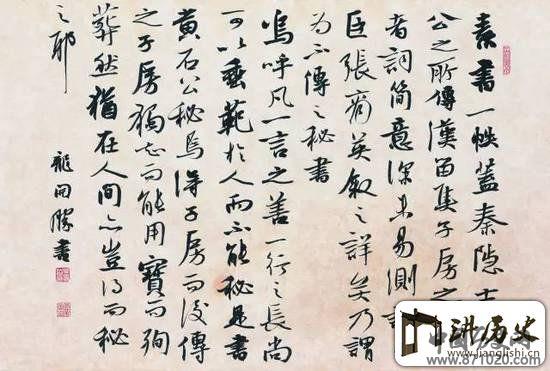 素書一帙蓋秦隱士
公之所傳漢留侯子房之
者詞簡意深未易測識
臣張商英叙之詳矣乃謂
為不傳之秘書
嗚呼凡一言之善一行之長尚
可以垂範於人而不能秘是書
黃石公秘焉得子房而後傳
之子房獨知而能用寶而殉
葬然猶在人間亦豈得而秘
之耶
龍開勝書
讲历史
www.jianglishi.cn
www.871020.com